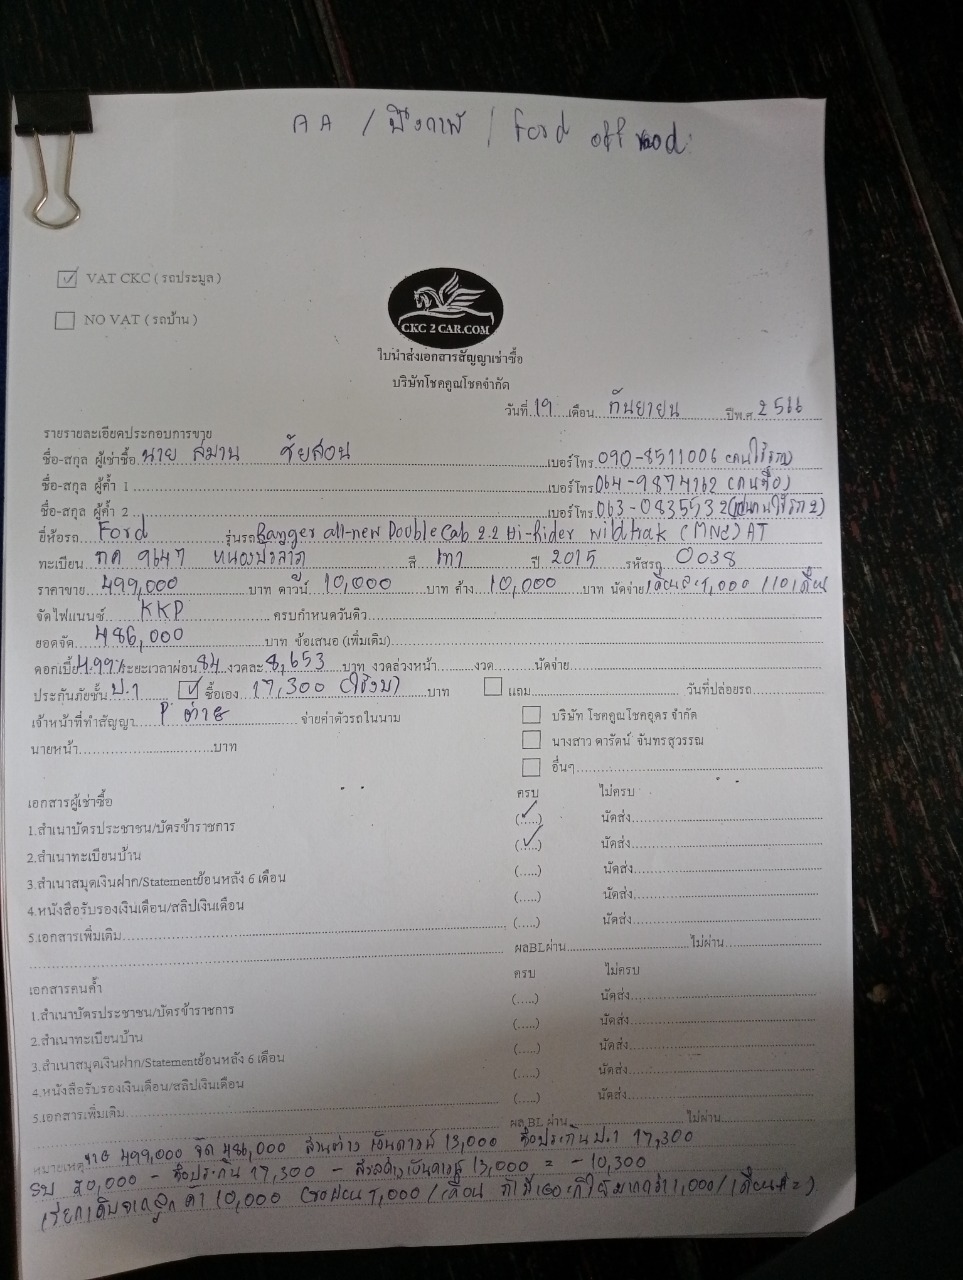 AA / บึงกาฬ / Ford off road
☑ VAT CKC ( รถประมูล )
☐ NO VAT ( รถบ้าน )
CKC 2 CAR.COM
ใบนำส่งเอกสารสัญญาเช่าซื้อ
บริษัทโชคคูณโชคจำกัด
วันที่ 19 เดือน กันยายน ปีพ.ศ. 2566
รายรายละเอียดประกอบการขาย
ชื่อ-สกุล ผู้เช่าซื้อ นาย สมาน ชัยสอน เบอร์โทร 090-8511006 (คนใช้รถ)
ชื่อ-สกุล ผู้ค้ำ 1 เบอร์โทร 064-9874162 (คนซื้อ)
ชื่อ-สกุล ผู้ค้ำ 2 เบอร์โทร 063-0835532
ยี่ห้อรถ Ford รุ่นรถ Ranger all-new Double Cab 2.2 Hi-Rider Wildtrak (MNC) AT
ทะเบียน 9647 สี เทา ปี 2015 รหัสรถ 0038
ราคาขาย 499,000 บาท ดาวน์ 10,000 บาท ค้าง 10,000 บาท นัดจ่าย เดือนละ 1,000 / 10 เดือน
จัดไฟแนนซ์ KKP ครบกำหนดวันดิว
ยอดจัด 486,000 บาท ข้อเสนอ (เพิ่มเติม)
ดอกเบี้ย 4.99% ระยะเวลาผ่อน 84 งวดละ 8,653 บาท งวดล่วงหน้า งวด นัดจ่าย
ประกันภัยชั้น ป.1 ☑ ซื้อเอง 17,300 บาท ☐ แถม วันที่ปล่อยรถ
เจ้าหน้าที่ทำสัญญา P ต่าย จ่ายค่าตัวรถในนาม ☐ บริษัท โชคคูณโชคอุดร จำกัด
นายหน้า บาท ☐ นางสาว ดารัตน์ จันทรสุวรรณ
☐ อื่นๆ
เอกสารผู้เช่าซื้อ ครบ ไม่ครบ
1.สำเนาบัตรประชาชน/บัตรข้าราชการ (✓) นัดส่ง
2.สำเนาทะเบียนบ้าน (✓) นัดส่ง
3.สำเนาสมุดเงินฝาก/Statementย้อนหลัง 6 เดือน (.....) นัดส่ง
4.หนังสือรับรองเงินเดือน/สลิปเงินเดือน (.....) นัดส่ง
5.เอกสารเพิ่มเติม (.....) นัดส่ง
ผลBLผ่าน ไม่ผ่าน
เอกสารคนค้ำ ครบ ไม่ครบ
1.สำเนาบัตรประชาชน/บัตรข้าราชการ (.....) นัดส่ง
2.สำเนาทะเบียนบ้าน (.....) นัดส่ง
3.สำเนาสมุดเงินฝาก/Statementย้อนหลัง 6 เดือน (.....) นัดส่ง
4.หนังสือรับรองเงินเดือน/สลิปเงินเดือน (.....) นัดส่ง
5.เอกสารเพิ่มเติม (.....) นัดส่ง
ผล BL ผ่าน ไม่ผ่าน
หมายเหตุ ขาย 499,000 จัด 486,000 ส่วนต่าง เงินดาวน์ 13,000 ซื้อประกัน ป.1 17,300
รับ 20,000 - ซื้อประกัน 17,300 - ส่วนต่างเงินดาวน์ 13,000 = - 10,300
10,000 1,000 / เดือน 1,000 / เดือน